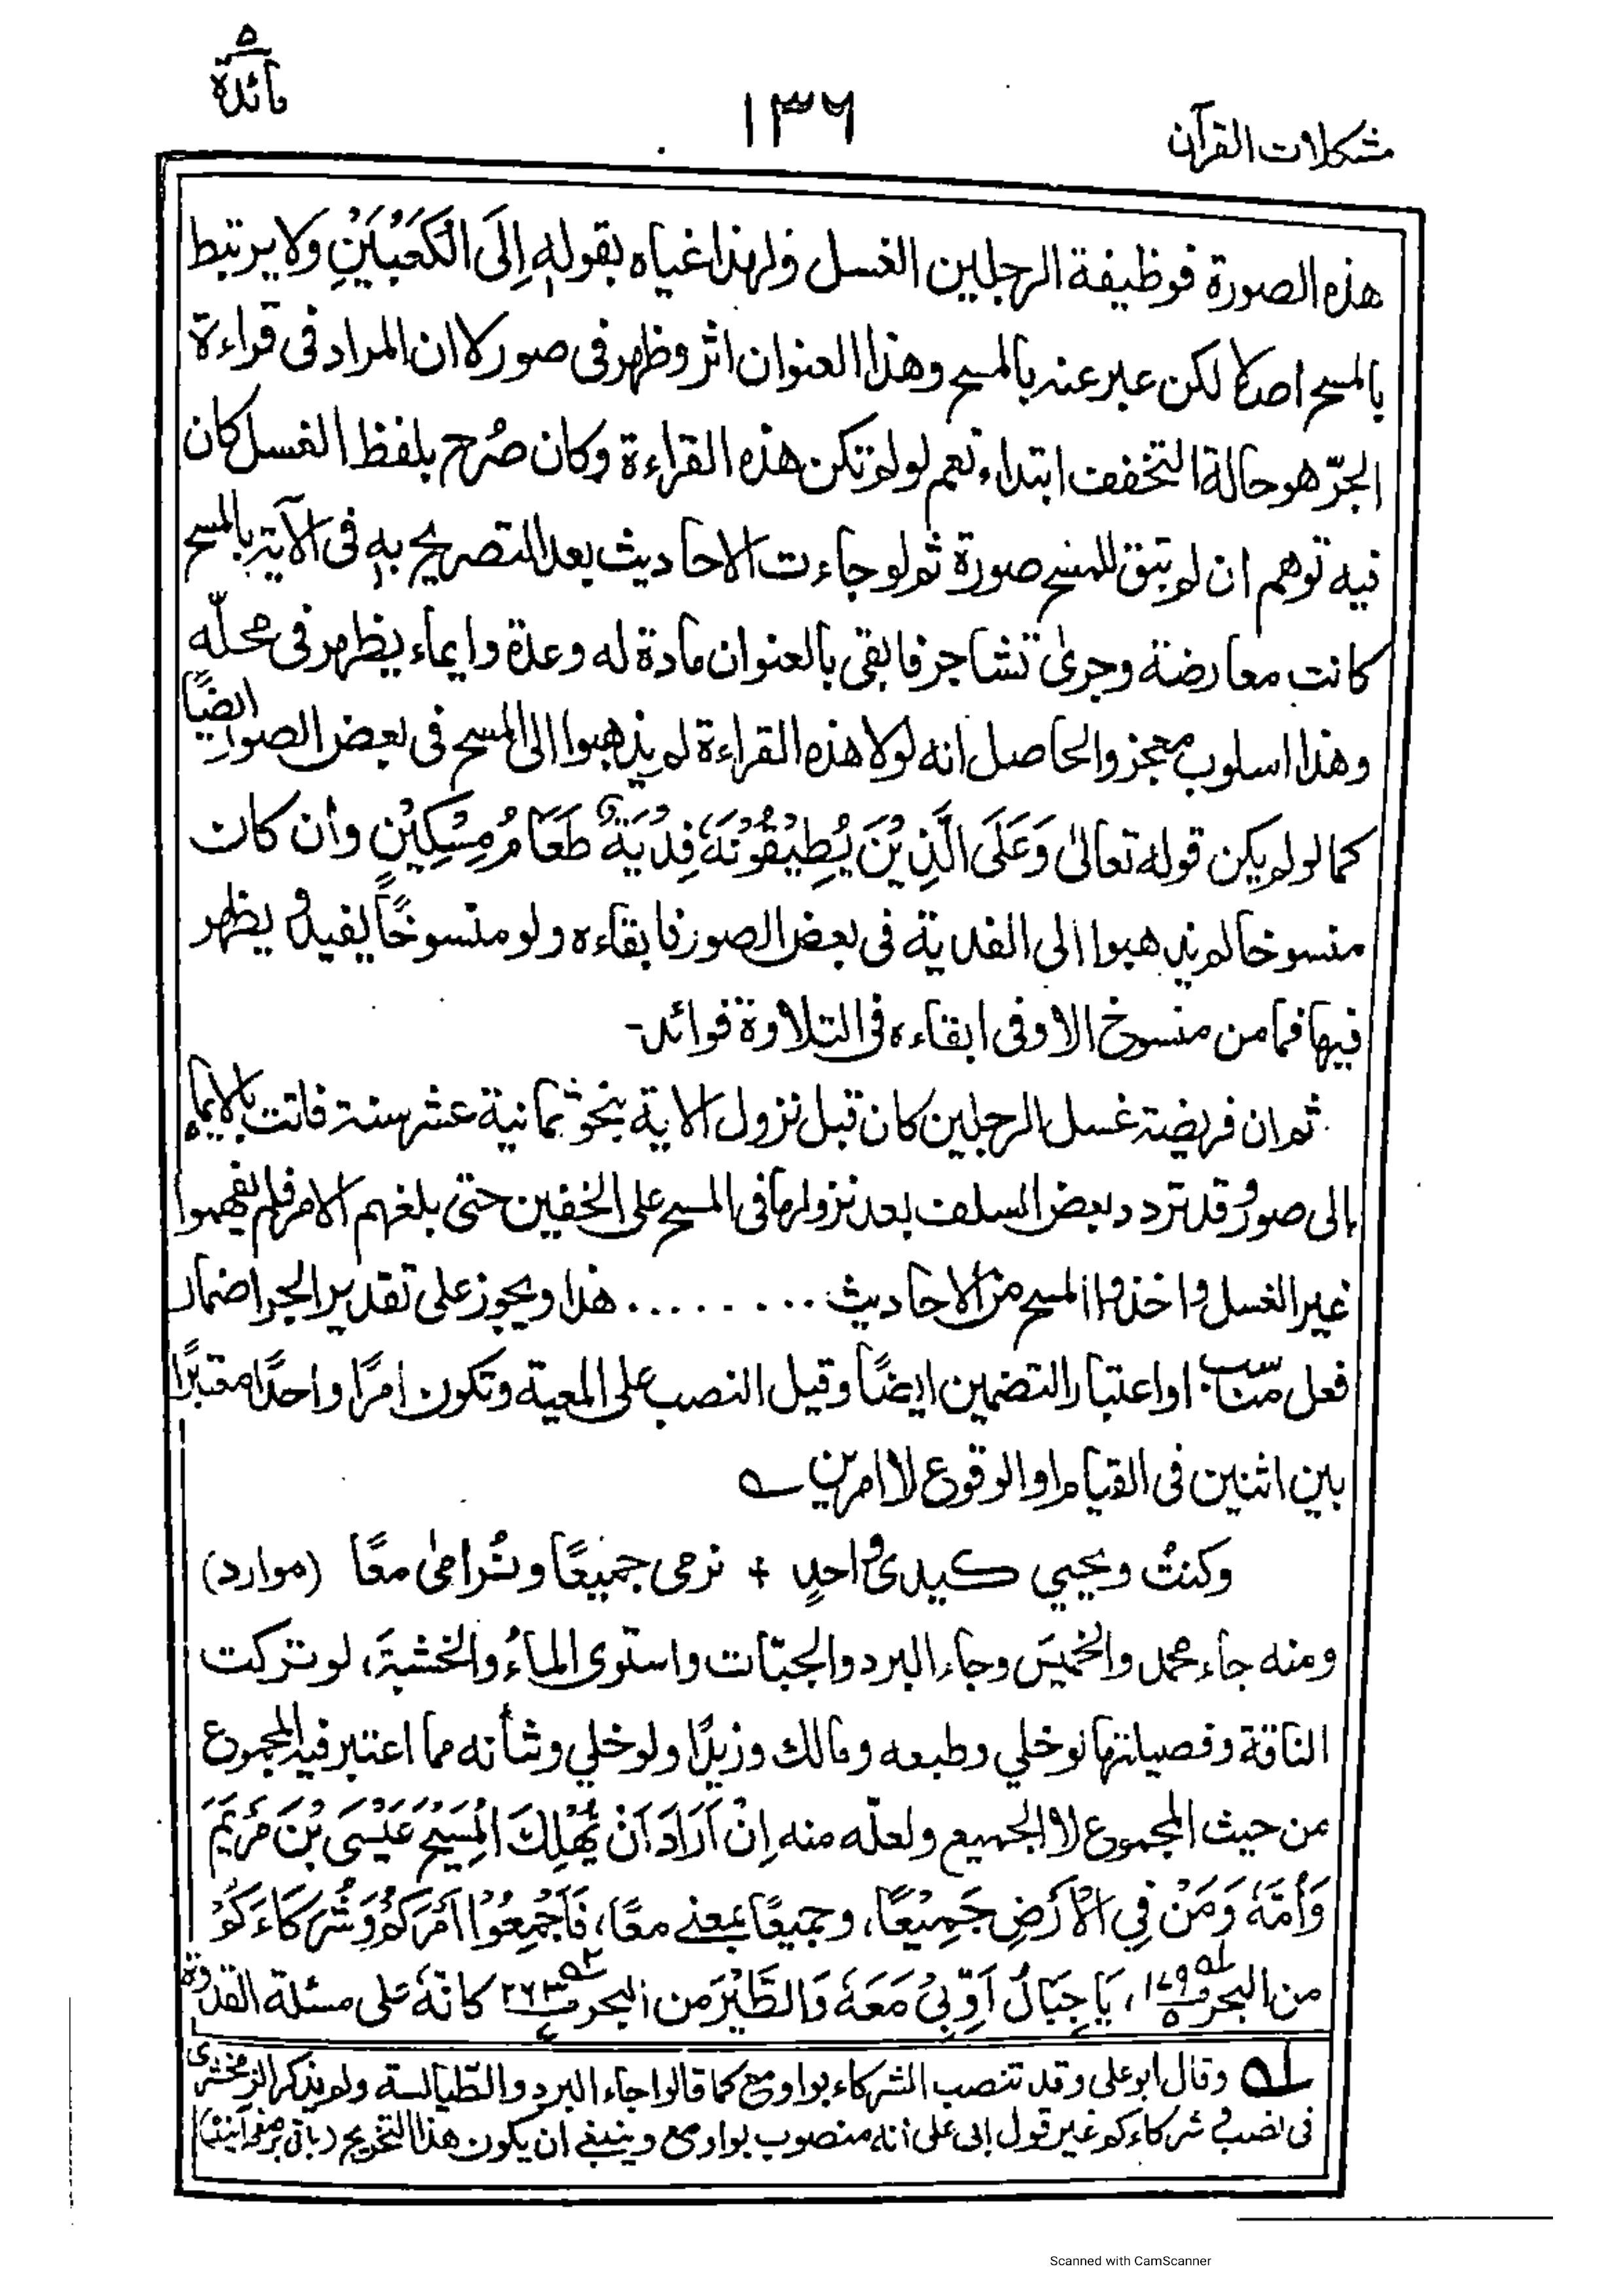 مائدة ۵
۱۳۶
مشكلات القرآن
هذه الصورة فوظيفة الرجلين الغسل ولهذا غياه بقوله اِلَى الْكَعْبَيْنِ ولا يرتبط
بالمسح اصلا لكن عبر عنه بالمسح وهذا العنوان اثر وظهر فى صور لا ان المراد فى قراءة
الجرّ هو حالة التخفف ابتداء نعم لو لم تكن هذه القراءة وكان صُرح بلفظ الغسل كان
فيه توهم ان لم تبق للمسح صورة ثم لو جاءت الاحاديث بعد التصريح به فى الآية بالمسح
كانت معارضة وجرىٰ تشاجر فابقى بالعنوان مادة له وعدة وايماء يظهر فى محلّه
وهذا اسلوب معجز والحاصل انه لولا هذه القراءة لم يذهبوا الى المسح فى بعض الصور ايضًا
كما لو لم يكن قوله تعالىٰ وَعَلَى الَّذِيْنَ يُطِيْقُوْنَهٗ فِدْيَةٌ طَعَامُ مِسْكِيْنٍ وأن كان
منسوخا لم يذهبوا الى الفدية فى بعض الصور فابقاءه ولو منسوخًا يفيد و يظهر
فيها فما من منسوخ الا وفى ابقاءه فى التلاوة فوائد-
ثم ان فريضة غسل الرجلين كان قبل نزول الاية بنحو ثمانية عشر سنة فاتت بالايماء
الى صور وقد تردد بعض السلف بعد نزولها فى المسح على الخفين حتى بلغهم الامر فلم يفهموا
غير الغسل واخذوا المسح من الاحاديث ......... هذا ويجوز على تقدير الجر اضمار
فعل مناسب او اعتبار التضمين ايضًا وقيل النصب على المعية وتكون امرًا واحدًا معتبرًا
بين اثنين فى القيام او الوقوع لا امرين ؎
وكنتُ ويحيي كيدى واحدٍ + نرمى جميعًا ونُرامىٰ معًا (موارد)
ومنه جاء محمد والخميسَ وجاء البرد والجبّات واستوى الماءُ والخشبةَ، لو تركت
الناقة وفصيلتها لو خلي وطبعه ومالك وزيدًا ولو خلي وشأنه مما اعتبر فيه المجموع
من حيث المجموع لا الجميع ولعلّه منه اِنْ اَرَادَ اَنْ يُّهْلِكَ الْمَسِيْحَ عَيْسَى بْنَ مَرْيَمَ
وَاُمَّهٗ وَمَنْ فِي الْاَرْضِ جَمِيْعًا، وجميعًا بمعنے معًا، فَاَجْمِعُوْا اَمْرَكُمْ وَشُرَكَاءَكُمْ
من البحر ١٧٩/٥ ١ه، يَا جِبَالُ اَوِّبِيْ مَعَهٗ وَالطَّيْرَ من البحر ٢٦٣/٧ ٢ه كانّه على مسئلة القدوة
١ه وقال ابو على وقد تنصب الشركاء بواو مع كما قالوا جاء البرد والطّيالسة ولم يذكر الزمخشرى
فى نصب شركاءكم غير قول ابى على انه منصوب بواو مع وينبغے ان يكون هذا التخريج (باقى برصفحہ آئندہ)
Scanned with CamScanner